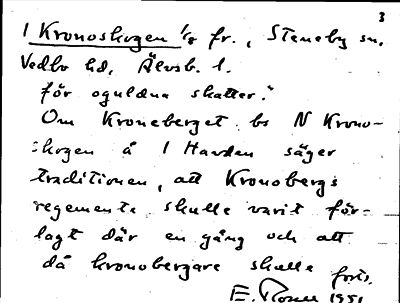 3
1 Kronoskogen 1/8 fr., Steneby sn.
Vedbo hd, Älvsb. l.
för oguldna skatter."
Om Kroneberget bs N Krono-
skogen å 1 Harden säger
traditionen, att Kronobergs
regemente skulle varit för-
lagt där en gång och att
då kronobergare skulle forts.
E. Rosell 1951